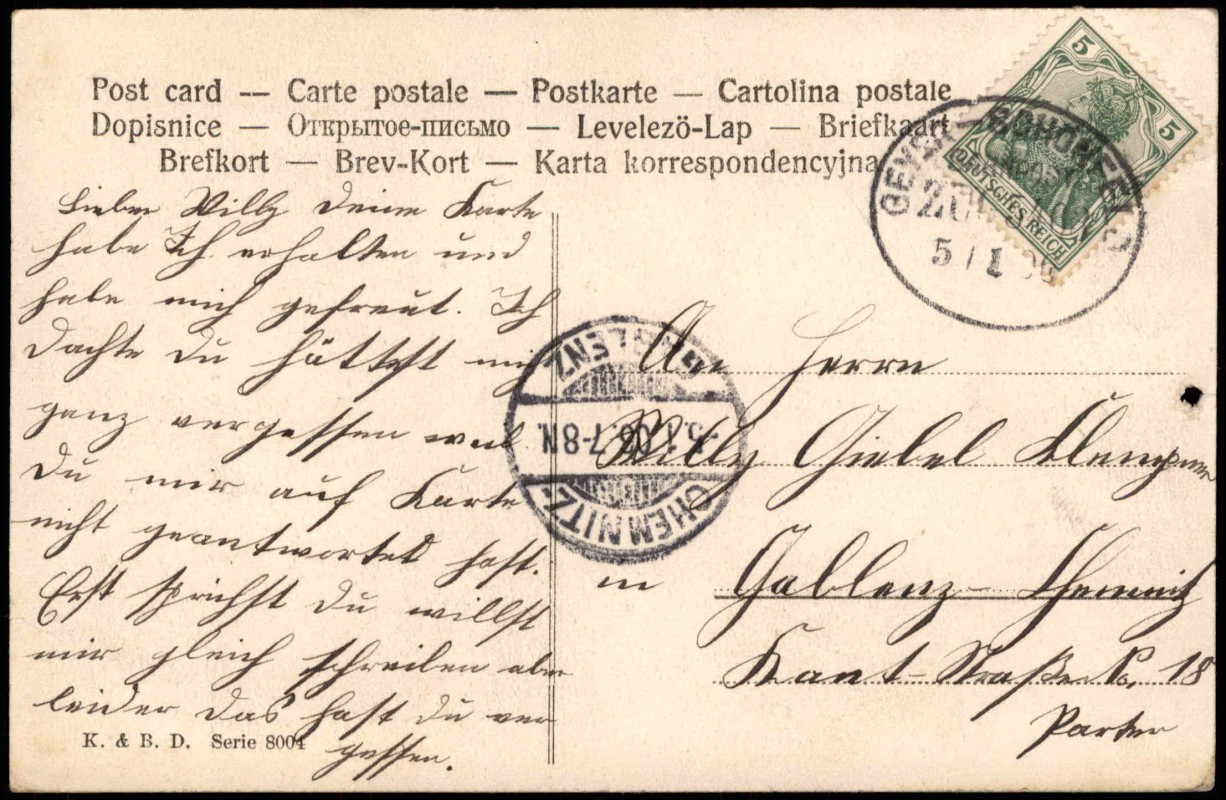 Post card -- Carte postale — Postkarte — Cartolina postale
Dopisnice — Открытое-письмо — Levelező-Lap — Briefkaart
Brefkort — Brev-Kort — Karta korrespondencyjna
5
5
DEUTSCHES REICH
5/1
Lieber Willy Deine Karte
habe Ich erhalten und
habe mich gefreut. Ich
dachte du hättest mich
ganz vergessen weil
Du mir auf Karte
nicht geantwortet hast.
Erst sprichst Du willst
mir gleich schreiben aber
leider das hast du ver
gessen.
K. & B. D. Serie 8004
CHEMNITZ-
GABLENZ
-5.1.06.7-8N.
An Herrn
Willy Giebel Klempner
in Gablenz-Chemnitz
Kant-Straße No. 18
Parter